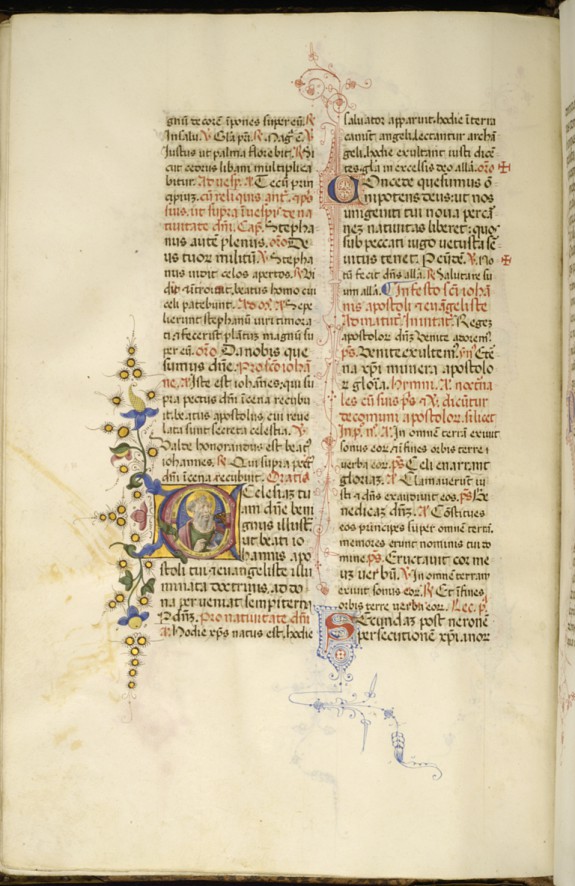 gnū ⁊ decorē īpones super eū. ℟
In salu. ℣ Gla pr̄i. ℟ Mag. ē. ℣
Iustus ut palma florebit. ℟ Si
cut cedrus libani multiplica
bitur. Ad uesp. A Tecū prin
cipiū. cū reliquis ant. ⁊ ps̄
suis. ut supra ī uesp̄i de na
tiuitate dn̄i. Cap. Stepha
nus autē plenus. oro De
us tuor militū ℣ Stepha
nus uidit celos apertos. ℟ Vi
dit ⁊ ītroiuit. beatus homo cui
celi patebant. Ad A Sepe
lierunt stephanū uiri timora
ti ⁊ fecerūt planctū magnū su
per eū. oro Da nobis que
sumus dn̄e. Pro sc̄o iohā
ne. A Iste est iohānes. qui su
pra pectus dn̄i ī cena recubu
it. beatus apostolus cui reue
lata sunt secreta celestia. ℣
Valde honorandus est beat9
iohannes. ℟ Qui supra pect9
dn̄i ī cena recubuit. Oratio
Ecclesiaz tu
am dn̄e beni
gnus illustr̄
ut beati io
hannis apo
stoli tui ⁊ euangeliste illu
minata doctrinis. ad do
na perueniat sempiterna
P dn̄z. Pro natiuitate dn̄i
A Hodie xp̄s natus est. hodie
saluator apparuit. hodie ī terra
canūt angeli. lectantur archā
geli. hodie exultant iusti dicē
tes. gl̄a in excelsis deo all̄a. oro
Oncede quesumus ō
nipotens deus. ut nos
unigeniti tui noua per carnē
nez natiuitas liberet. quos
sub peccati iugo uetusta se
uitus tenet. P eūd. ℣ No
tū fecit dn̄s all̄a. ℟ Salutare su
um all̄a. In festo sc̄i iohā
nis apostoli ⁊ euāgeliste
Ad matut. Inuitat. Regez
apostolor dn̄z Venite adorem9.
ps. Venite exultem9. yn̄ Eter
na xp̄i munera apostolo
r gloria. hymni. A nocturna
les cū suis ps̄ ⁊ ℣. dicūtur
de comuni apostolor. silicet
In p. n. A In omnē terrā exiuit
sonus eor. ⁊ ī fines orbis terre
uerba eor. ps Celi enarrant
gloriaz. A Clamauerūt iu
sti ⁊ dn̄s exaudiuit eos. ps Be
nedicaz dn̄z. A Cōstitues
eos principes super omnē terrā.
memores erunt nominis tui do
mine. ps. Eructauit cor me
uz uerbū. ℣ In omnē terram
exiuit sonus eor. ℟ Et ī fines
orbis terre uerba eor. Lec. p.
Secundaz post neronē
persecutionē xp̄ianor